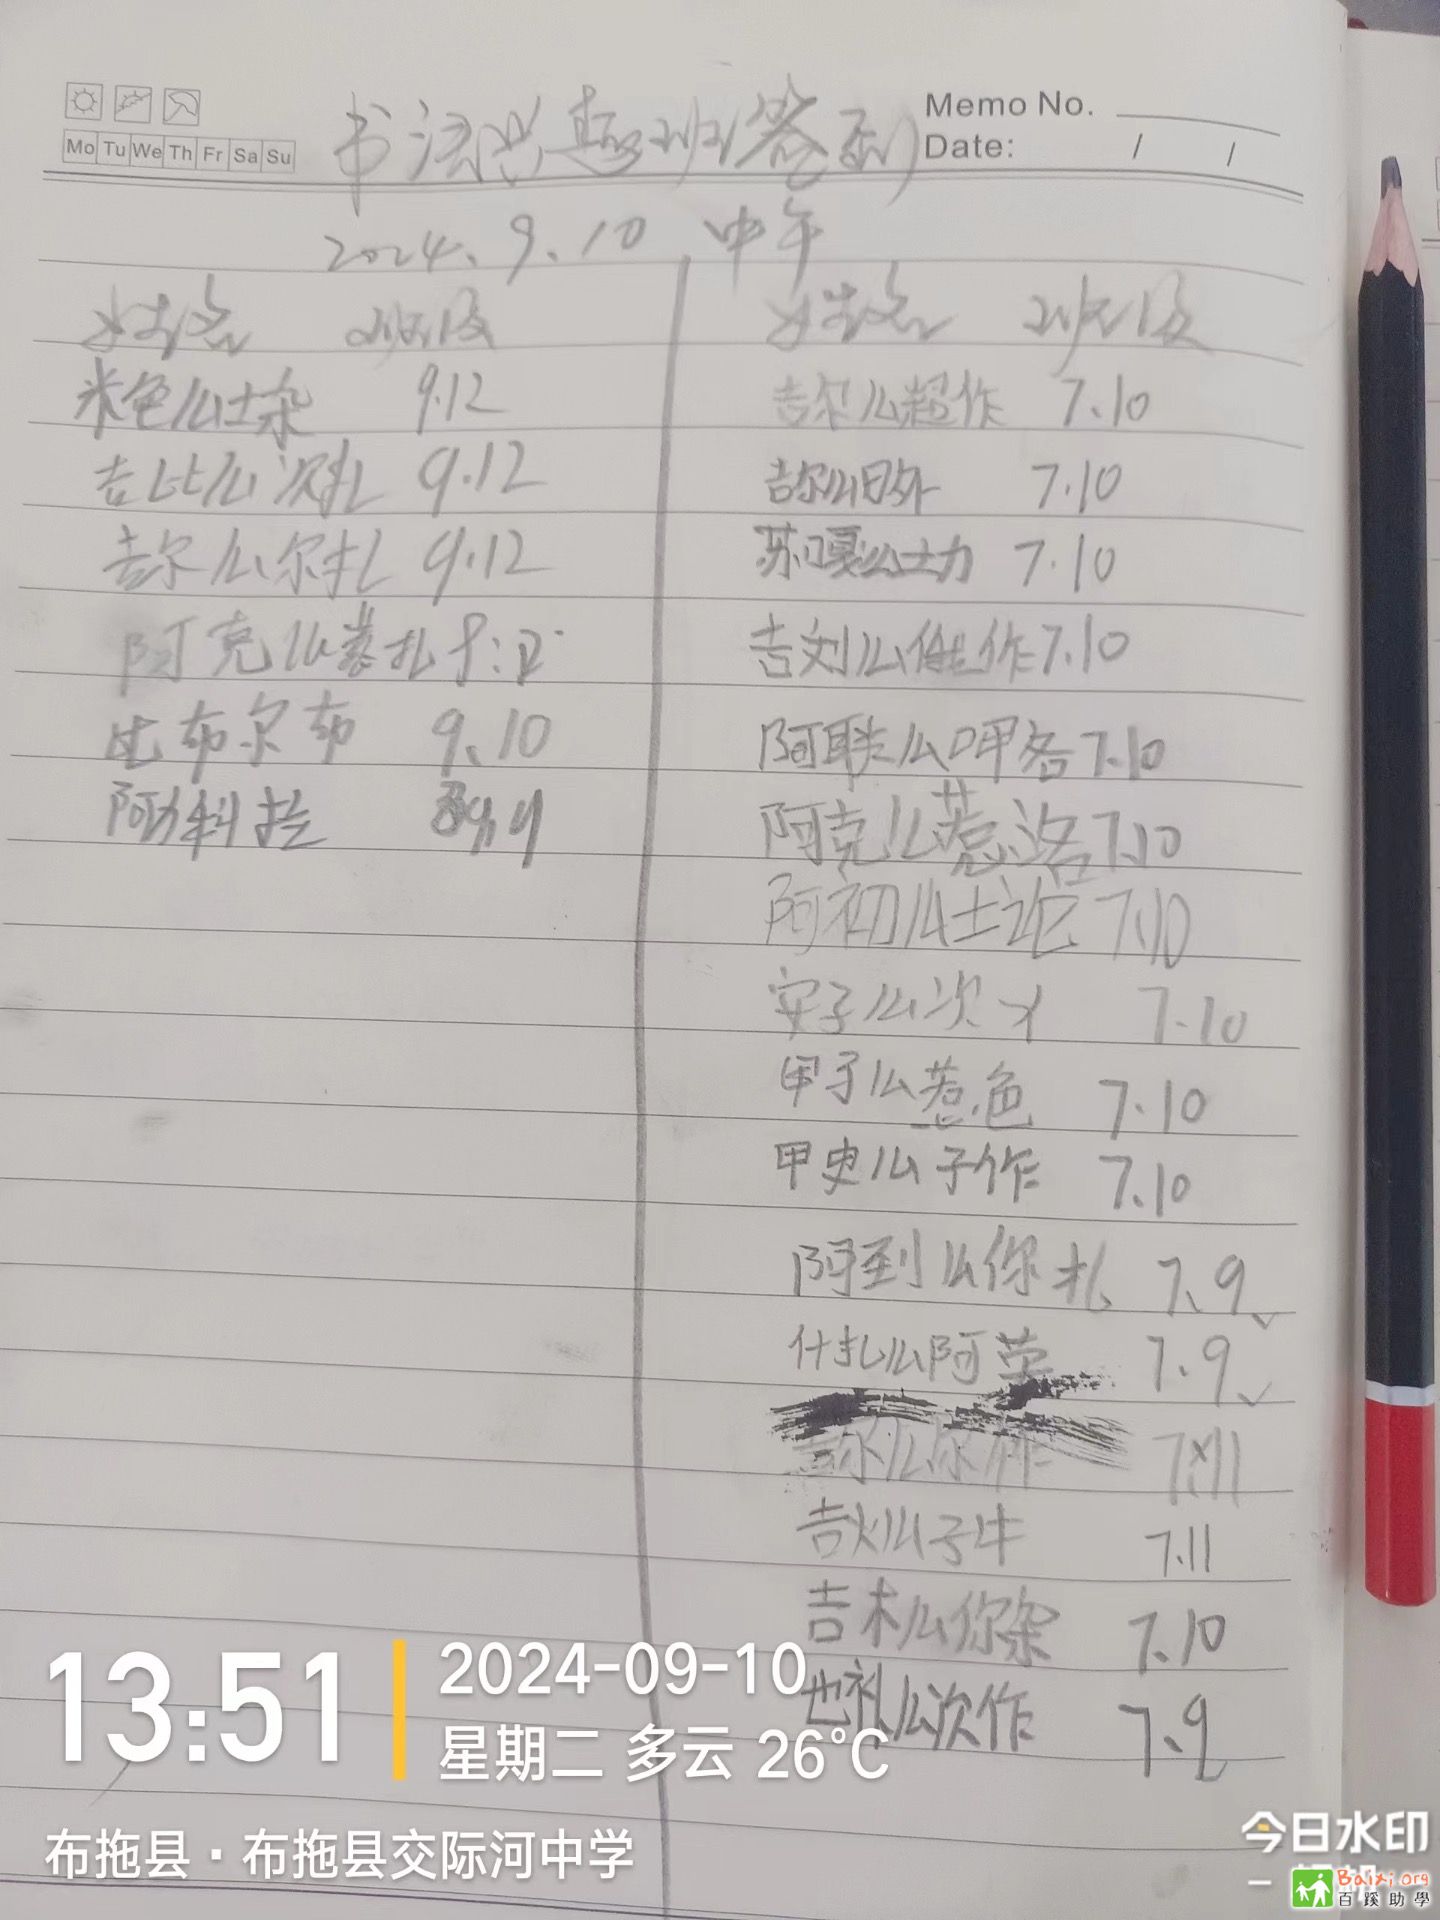 Memo No.
Date: / /
Mo Tu We Th Fr Sa Su
书法兴趣班签到
2024.9.10 中午
姓名 班级
米色么士杂 9.12
吉比么次扎 9.12
吉尔么尔扎 9.12
阿克么 扎 9.12
比布尔布 9.10
阿 科拉 9.9
姓名 班级
吉尔么超作 7.10
吉尔么日外 7.10
苏嘎么士力 7.10
吉刘么 作 7.10
阿联么呷各 7.10
阿克么惹洛 7.10
阿初么士论 7.10
安子么次 7.10
甲子么惹色 7.10
甲史么子作 7.10
阿到么你扎 7.9
什扎么阿 7.9
吉尔么尔作 7.11
吉火么子牛 7.11
吉木么你杂 7.10
也礼么次作 7.9
13:51
2024-09-10
星期二 多云 26℃
布拖县·布拖县交际河中学
今日水印
Baixi.org
百蹊助學